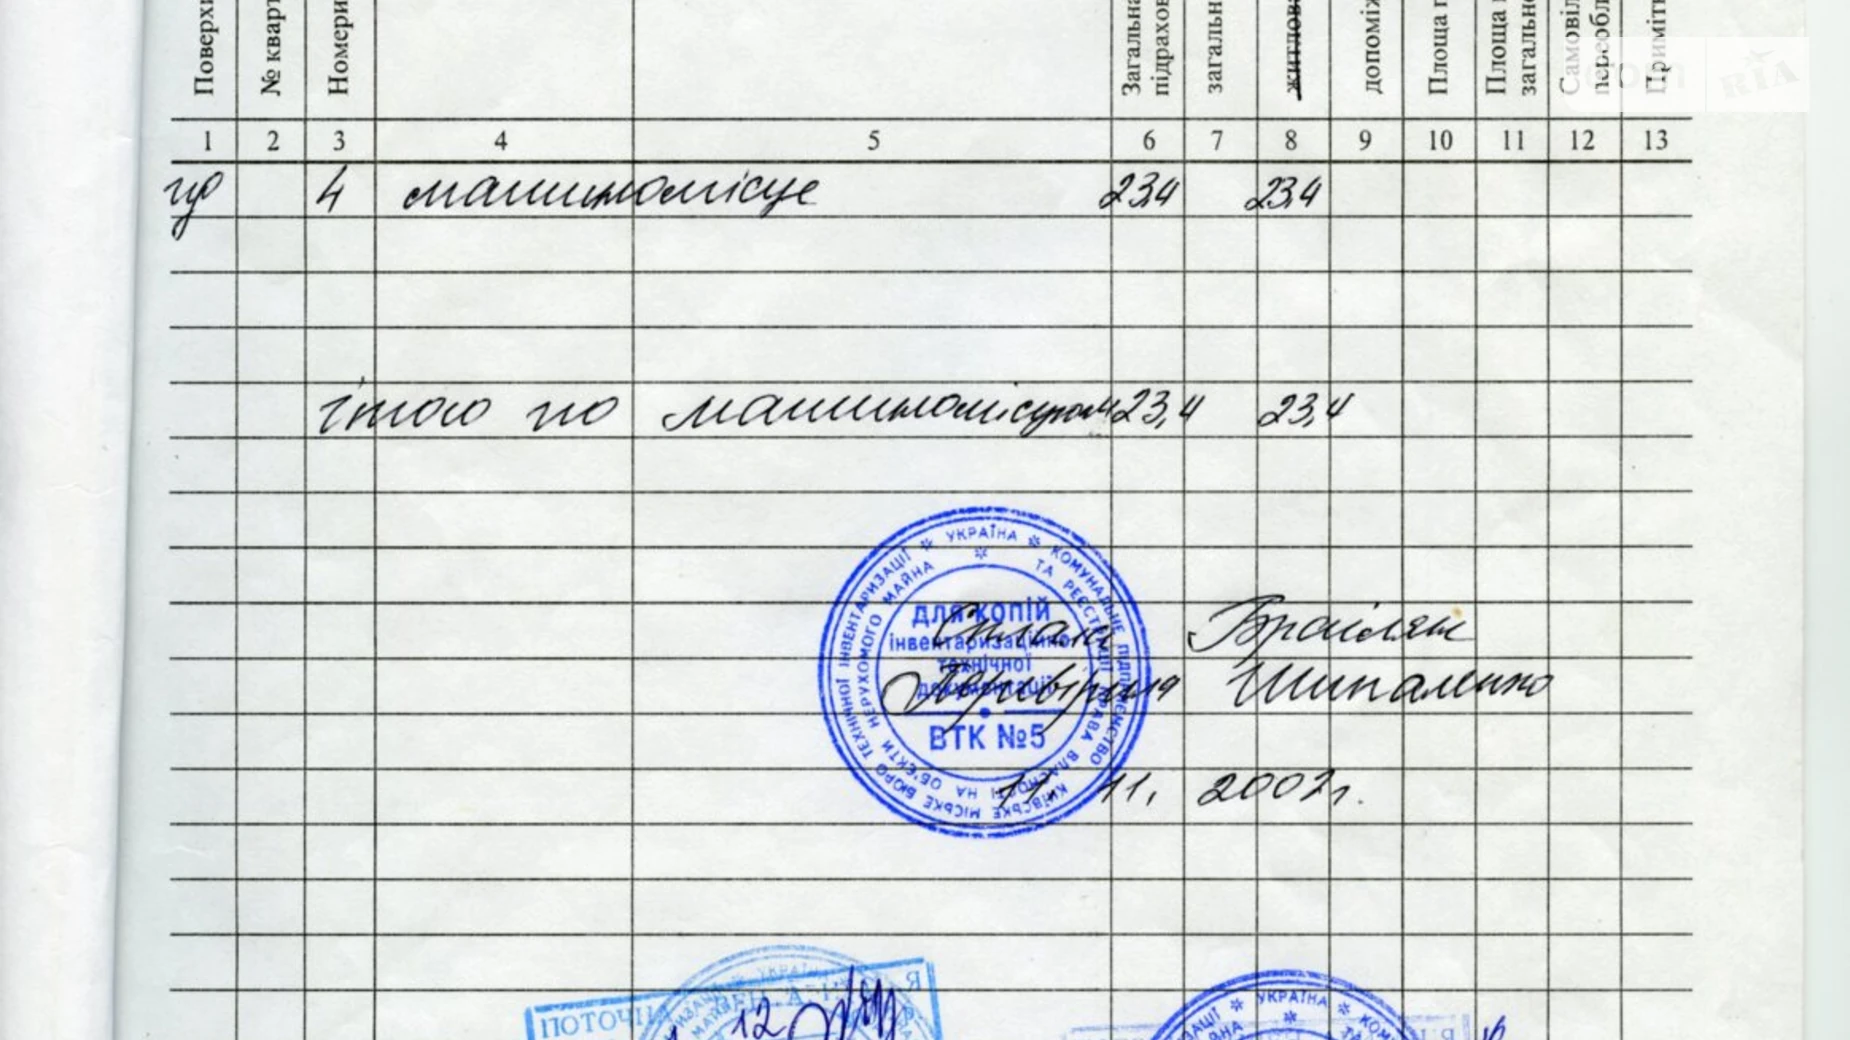 Поверхи № кварт Номери Загальна підрахов загальн житлова допоміж Площа п Площа загально Самовіл переобл Приміти
RIA
1 2 3 4 5 6 7 8 9 10 11 12 13
4 машиномісце 23,4 23,4
ітого по машиномісцям 23,4 23,4
УКРАЇНА * КОМУНАЛЬНЕ ПІДПРИЄМСТВО КИЇВСЬКЕ МІСЬКЕ БЮРО ТЕХНІЧНОЇ ІНВЕНТАРИЗАЦІЇ
ТА РЕЄСТРАЦІЇ ПРАВА ВЛАСНОСТІ НА ОБ'ЄКТИ НЕРУХОМОГО МАЙНА
для копій
інвентаризаційно
технічної
документації
ВТК №5
Склали
Перевірила Шипаленко
11. 11. 2002г.
УКРАЇНА
ПОТОЧНА
12
УКРАЇНА